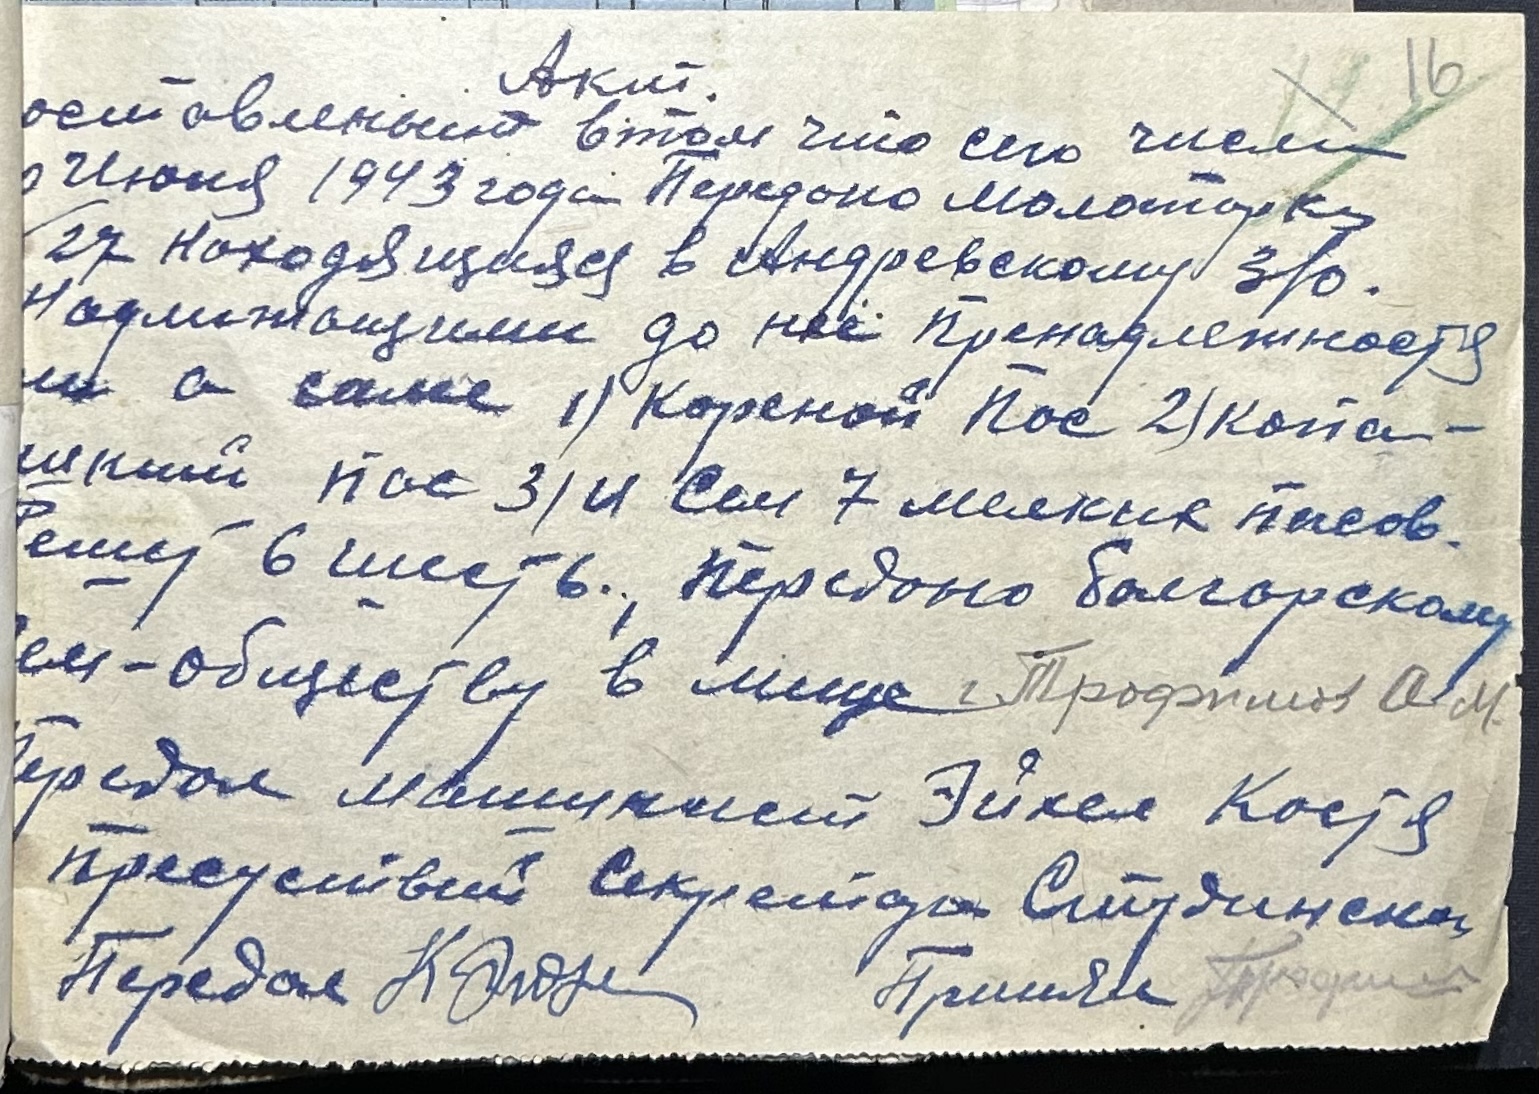 16
Акт.
оставленынй втом что сего числа
Июня 1943 года Передоно Молотарку
/27 Находящияся в Андревскому З/о.
Надлижащими до неё Пренадлежностя
ми а саме 1) Кореной Пос 2) Копа-
ички пос 3) и Сем 7 мелких пасов.
Решет 6 шесть., Передоно Болгарскому
ем-обществу в лице г. Трофимов А М.
Передал машинист Эйхел Костя
Пресуствий Секретаря Студинско
Передал Принял Трофимов